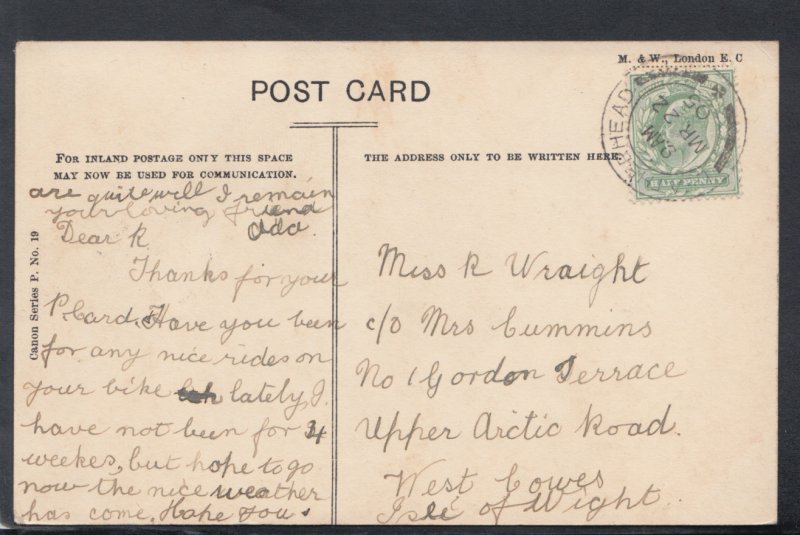 M. & W., London E. C
POST CARD
FOR INLAND POSTAGE ONLY THIS SPACE
MAY NOW BE USED FOR COMMUNICATION.
THE ADDRESS ONLY TO BE WRITTEN HERE.
HEAD
2 PM
MR 22
05
HALF PENNY
Canon Series P. No. 19
are quite well I remain
your loving friend
Ada.
Dear R
Thanks for your
P.Card. Have you been
for any nice rides on
your bike lately, I
have not been for 4
weekes, but hope to go
now the nice weather
has come. Hope you
Miss R Wraight
c/o Mrs Cummins
No 1 Gordon Terrace
Upper Arctic Road.
West Cowes
Isle of Wight.